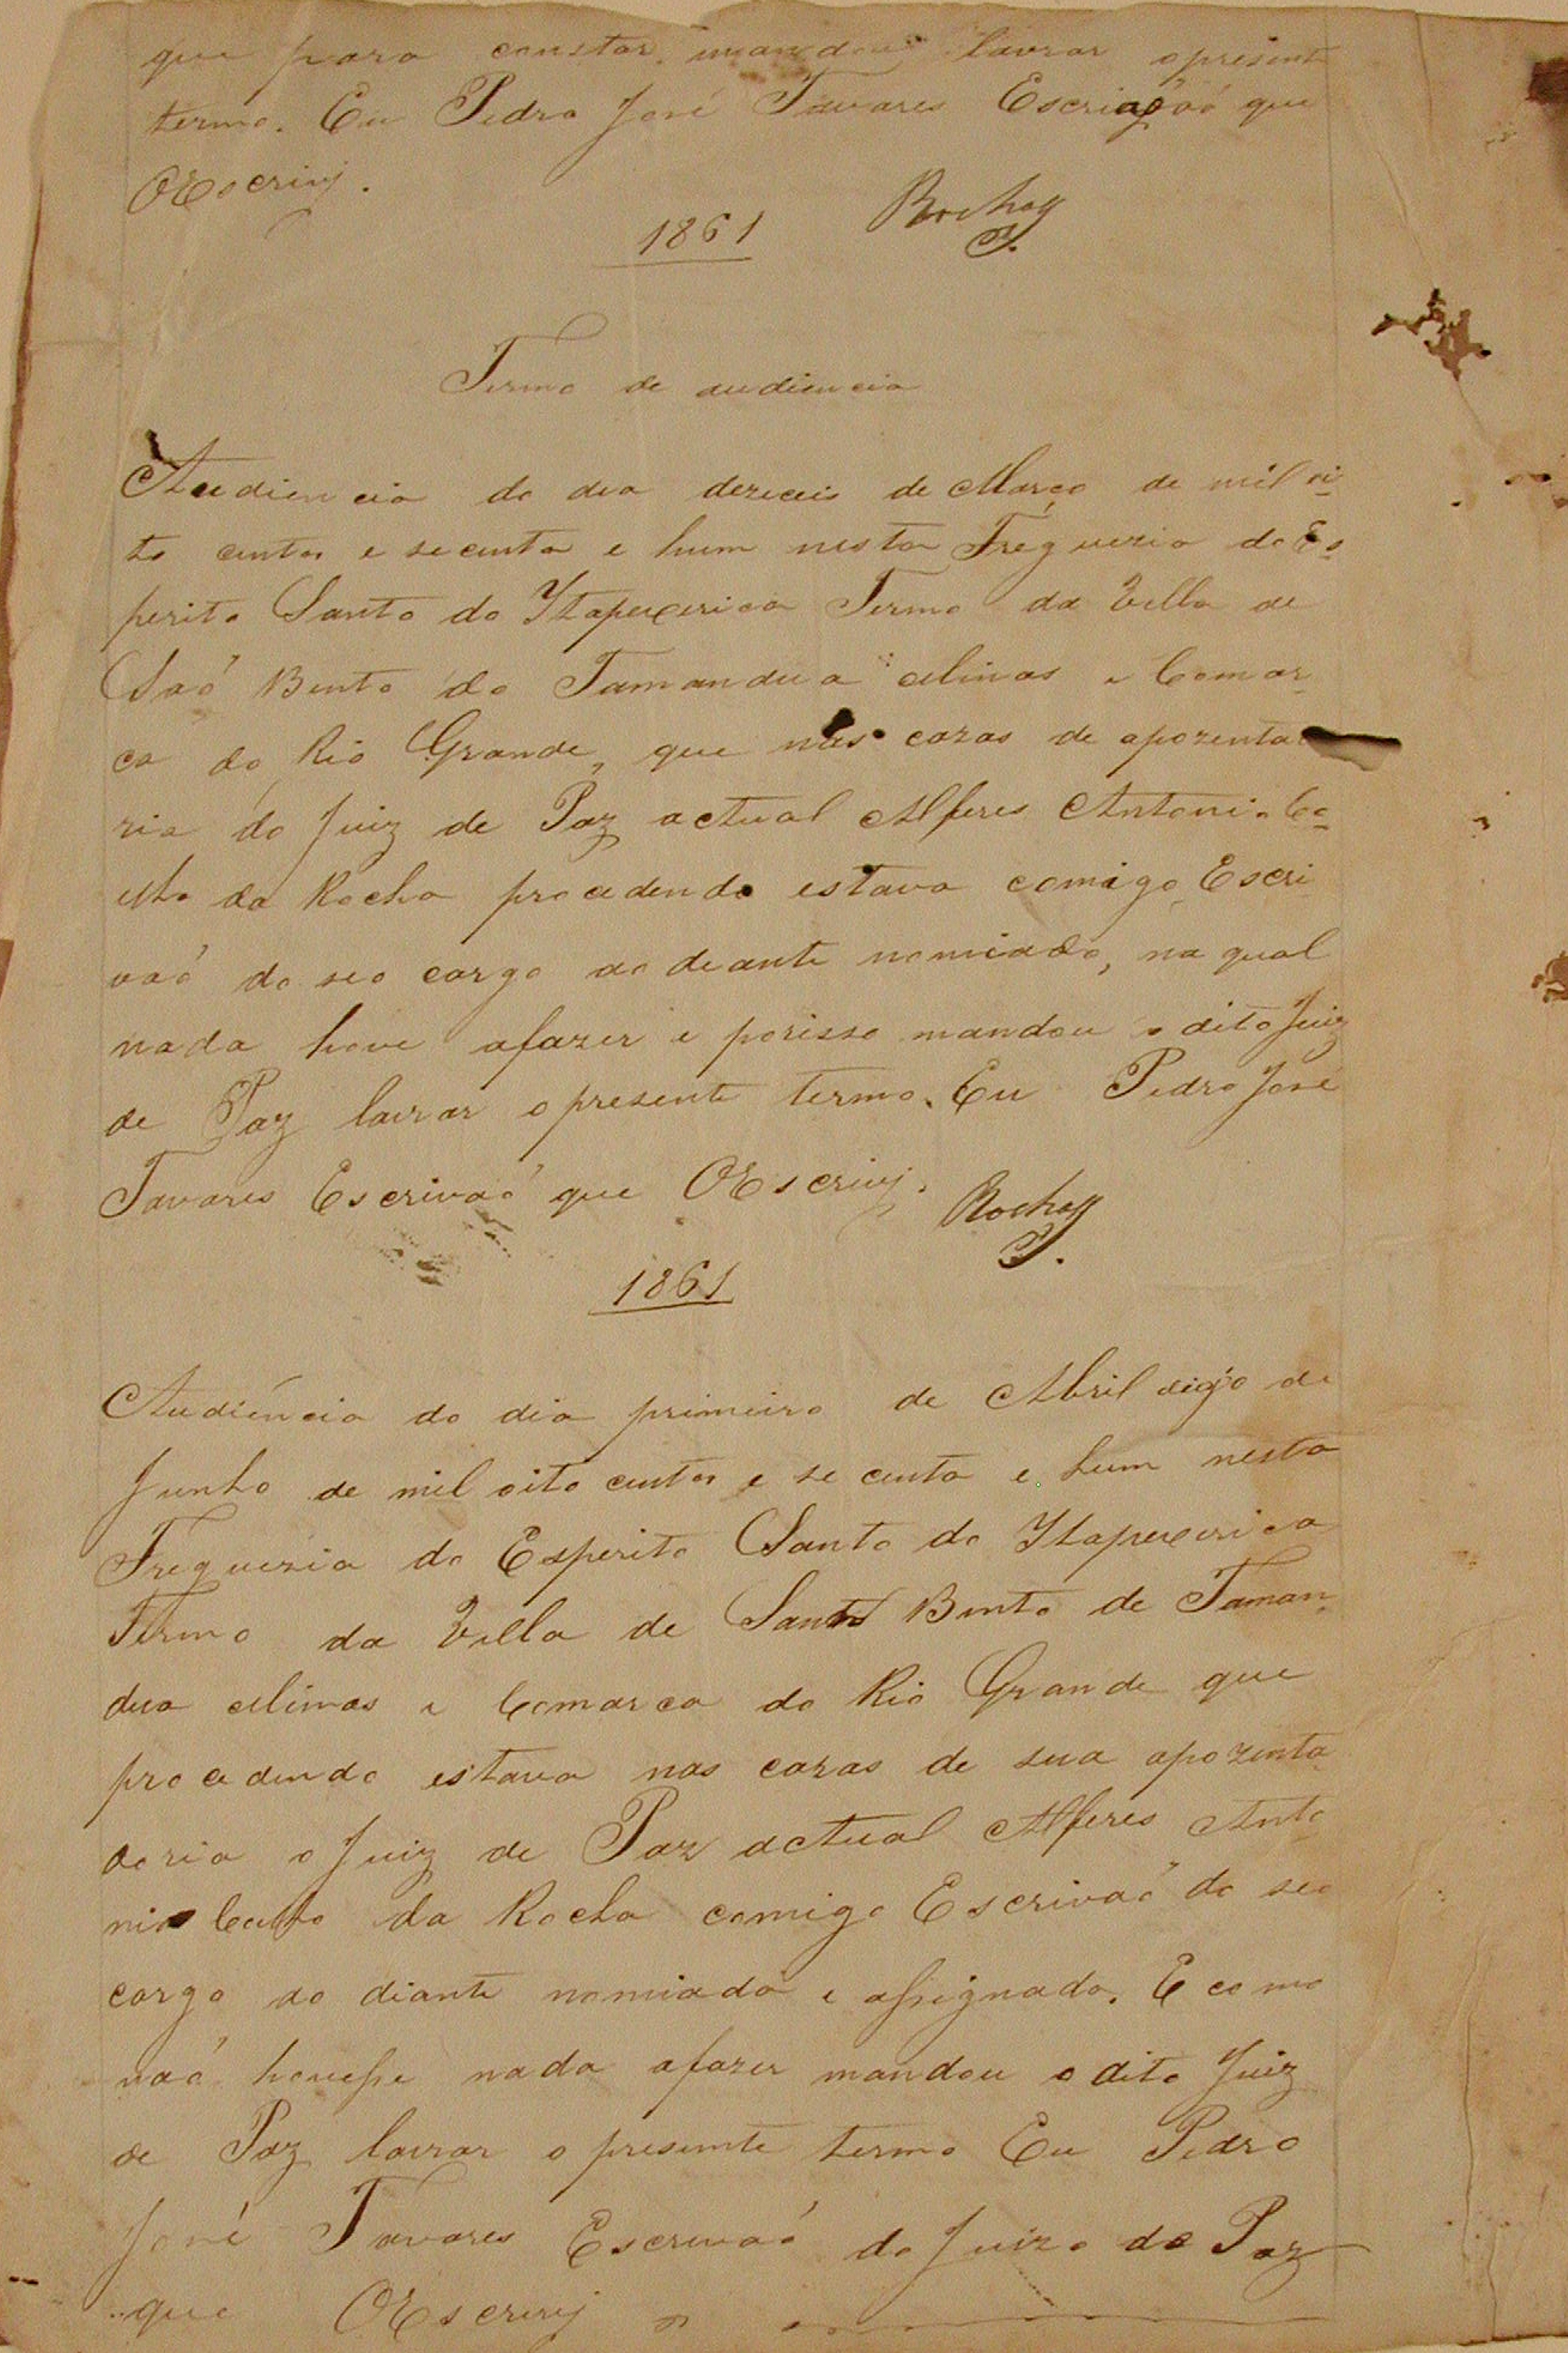 que para constar mandou lavrar opresente
termo. Eu Pedro José Tavares Escrivaó que
OEscrivj.
1861
Rocha
Termo de audiencia
Audiencia do dia dezeceis de Março de mil oi-
to centos e secenta e hum nesta Freguezia do Es-
perito Santo do Itapecerica Termo da Villa de
Saó Bento do Tamandua Minas e Comar-
ca do Rio Grande, que nas cazas de apozenta
ria do Juiz de Paz actual Alferes Antonio Co-
elho da Rocha procedendo estava comigo Escri
vaó do seo cargo ao deante nomiado, na qual
nada hove afazer e porisso mandou o dito Juiz
de Paz lavrar opresente termo. Eu Pedro José
Tavares Escrivaó que OEscrivj.
Rocha
1861
Audiencia do dia primeiro de Abril digo de
Junho de mil oito centos e secenta e hum nesta
Freguezia do Esperito Santo do Itapecerica
Termo da Villa de Santo Bento de Taman-
dua Minas e Comarca do Rio Grande que
procedendo estava nas cazas de sua apozenta
doria o Juiz de Paz actual Alferes Anto
nio Coelho da Rocha comigo Escrivaó do seo
cargo ao diante nomiado e assignado. E como
naó houesse nada afazer mandou o dito Juiz
de Paz lavrar o presente termo Eu Pedro
José Tavares Escrivaó do Juizo de Paz
que OEscrivj